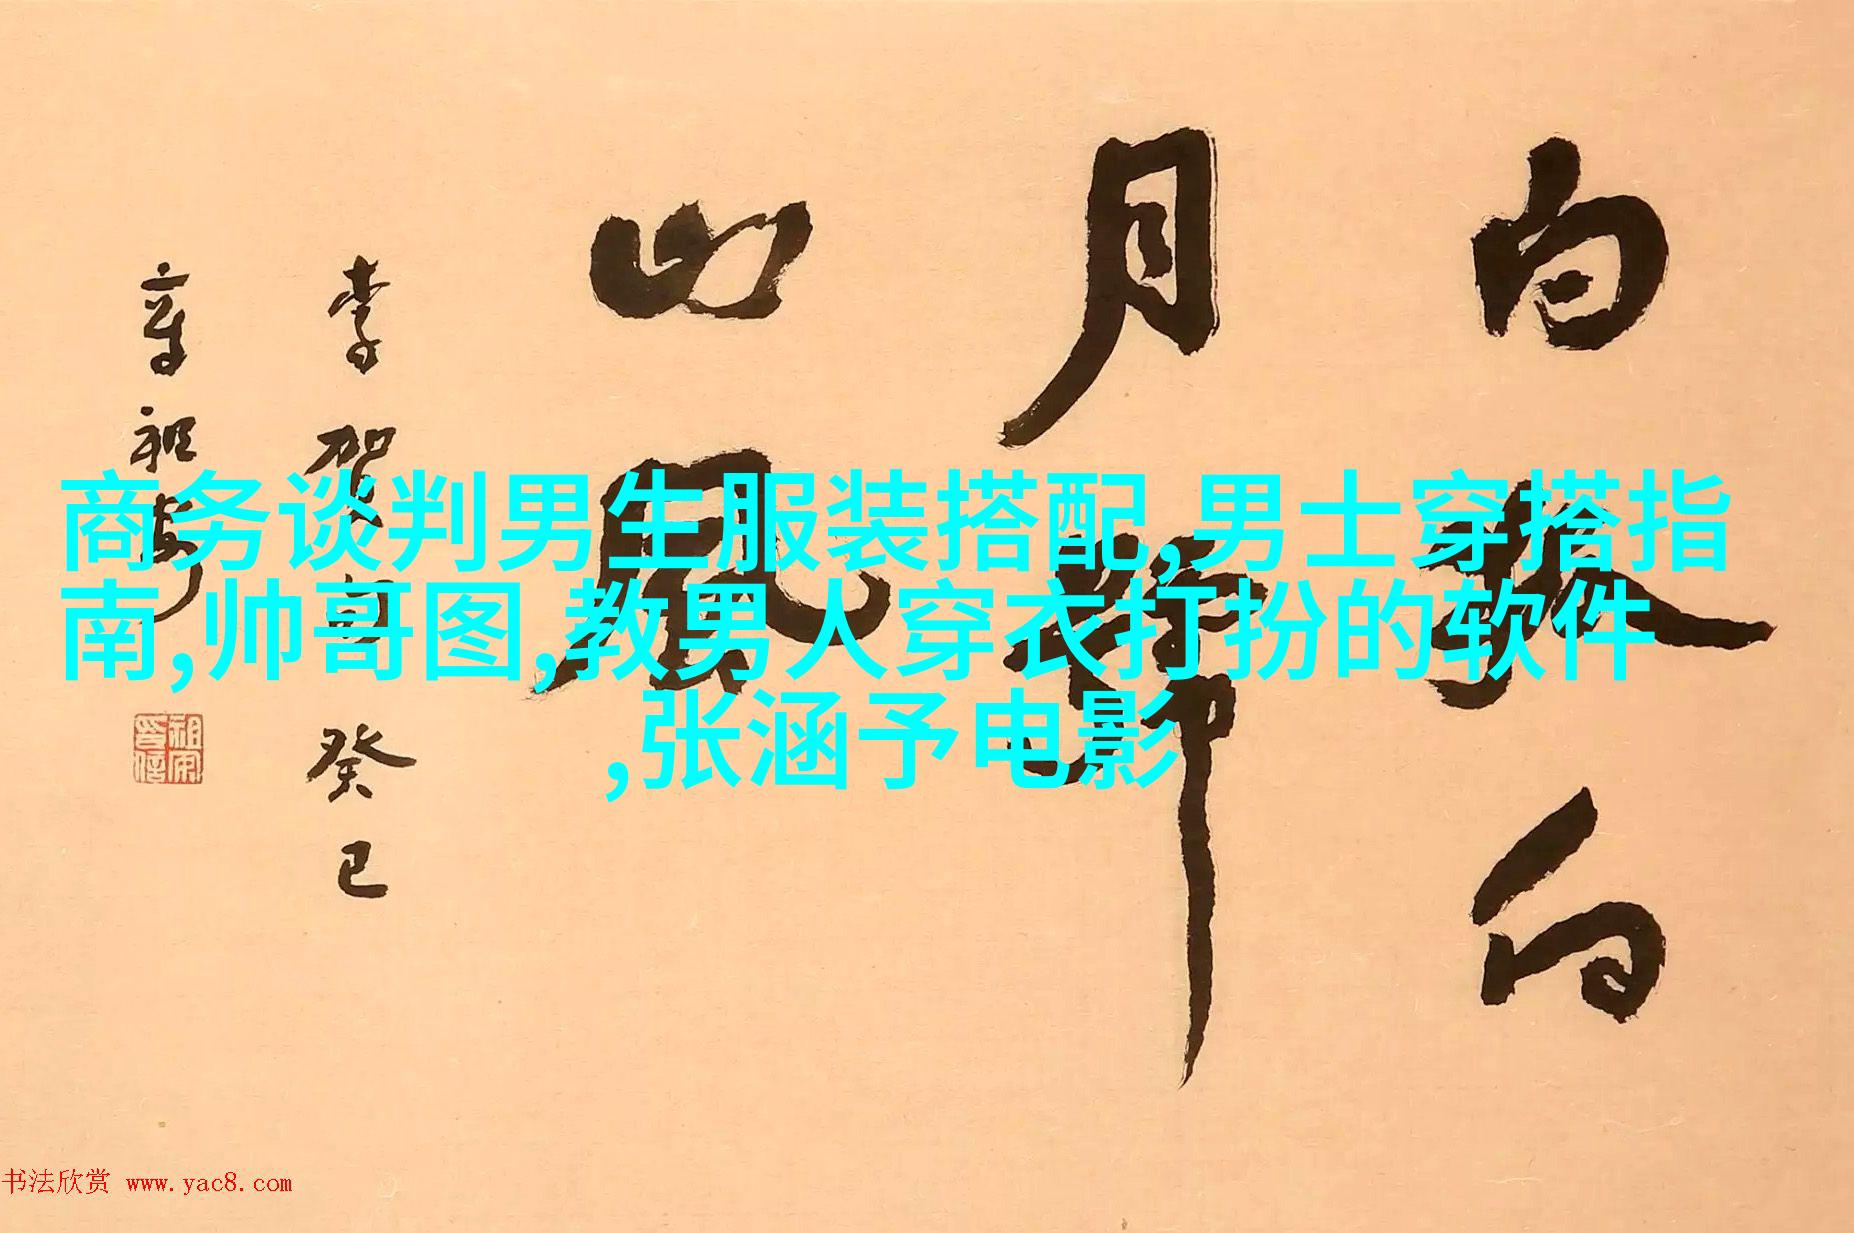 白狐向
月號
山風
李賀句癸巳
章祖安
商务谈判男生服装搭配,男士穿搭指
南,帅哥图,教男人穿衣打扮的软件
,张涵予电影
书法欣赏 www.yac8.com